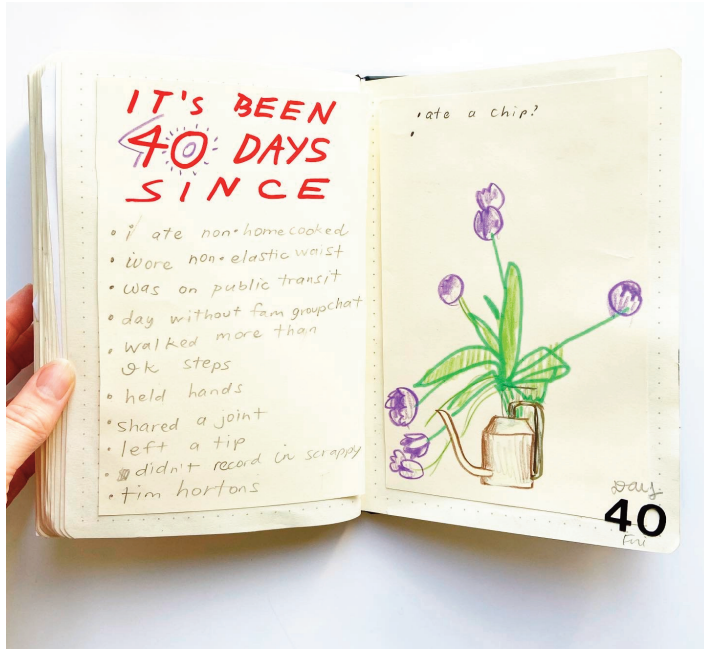 IT'S BEEN
40 DAYS
SINCE
• i ate non-homecooked
• wore non-elastic waist
• was on public transit
• day without fam groupchat
• walked more than
9k steps
• held hands
• shared a joint
• left a tip
• didn't record in scrappy
• tim hortons
• ate a chip?
•
Day
40